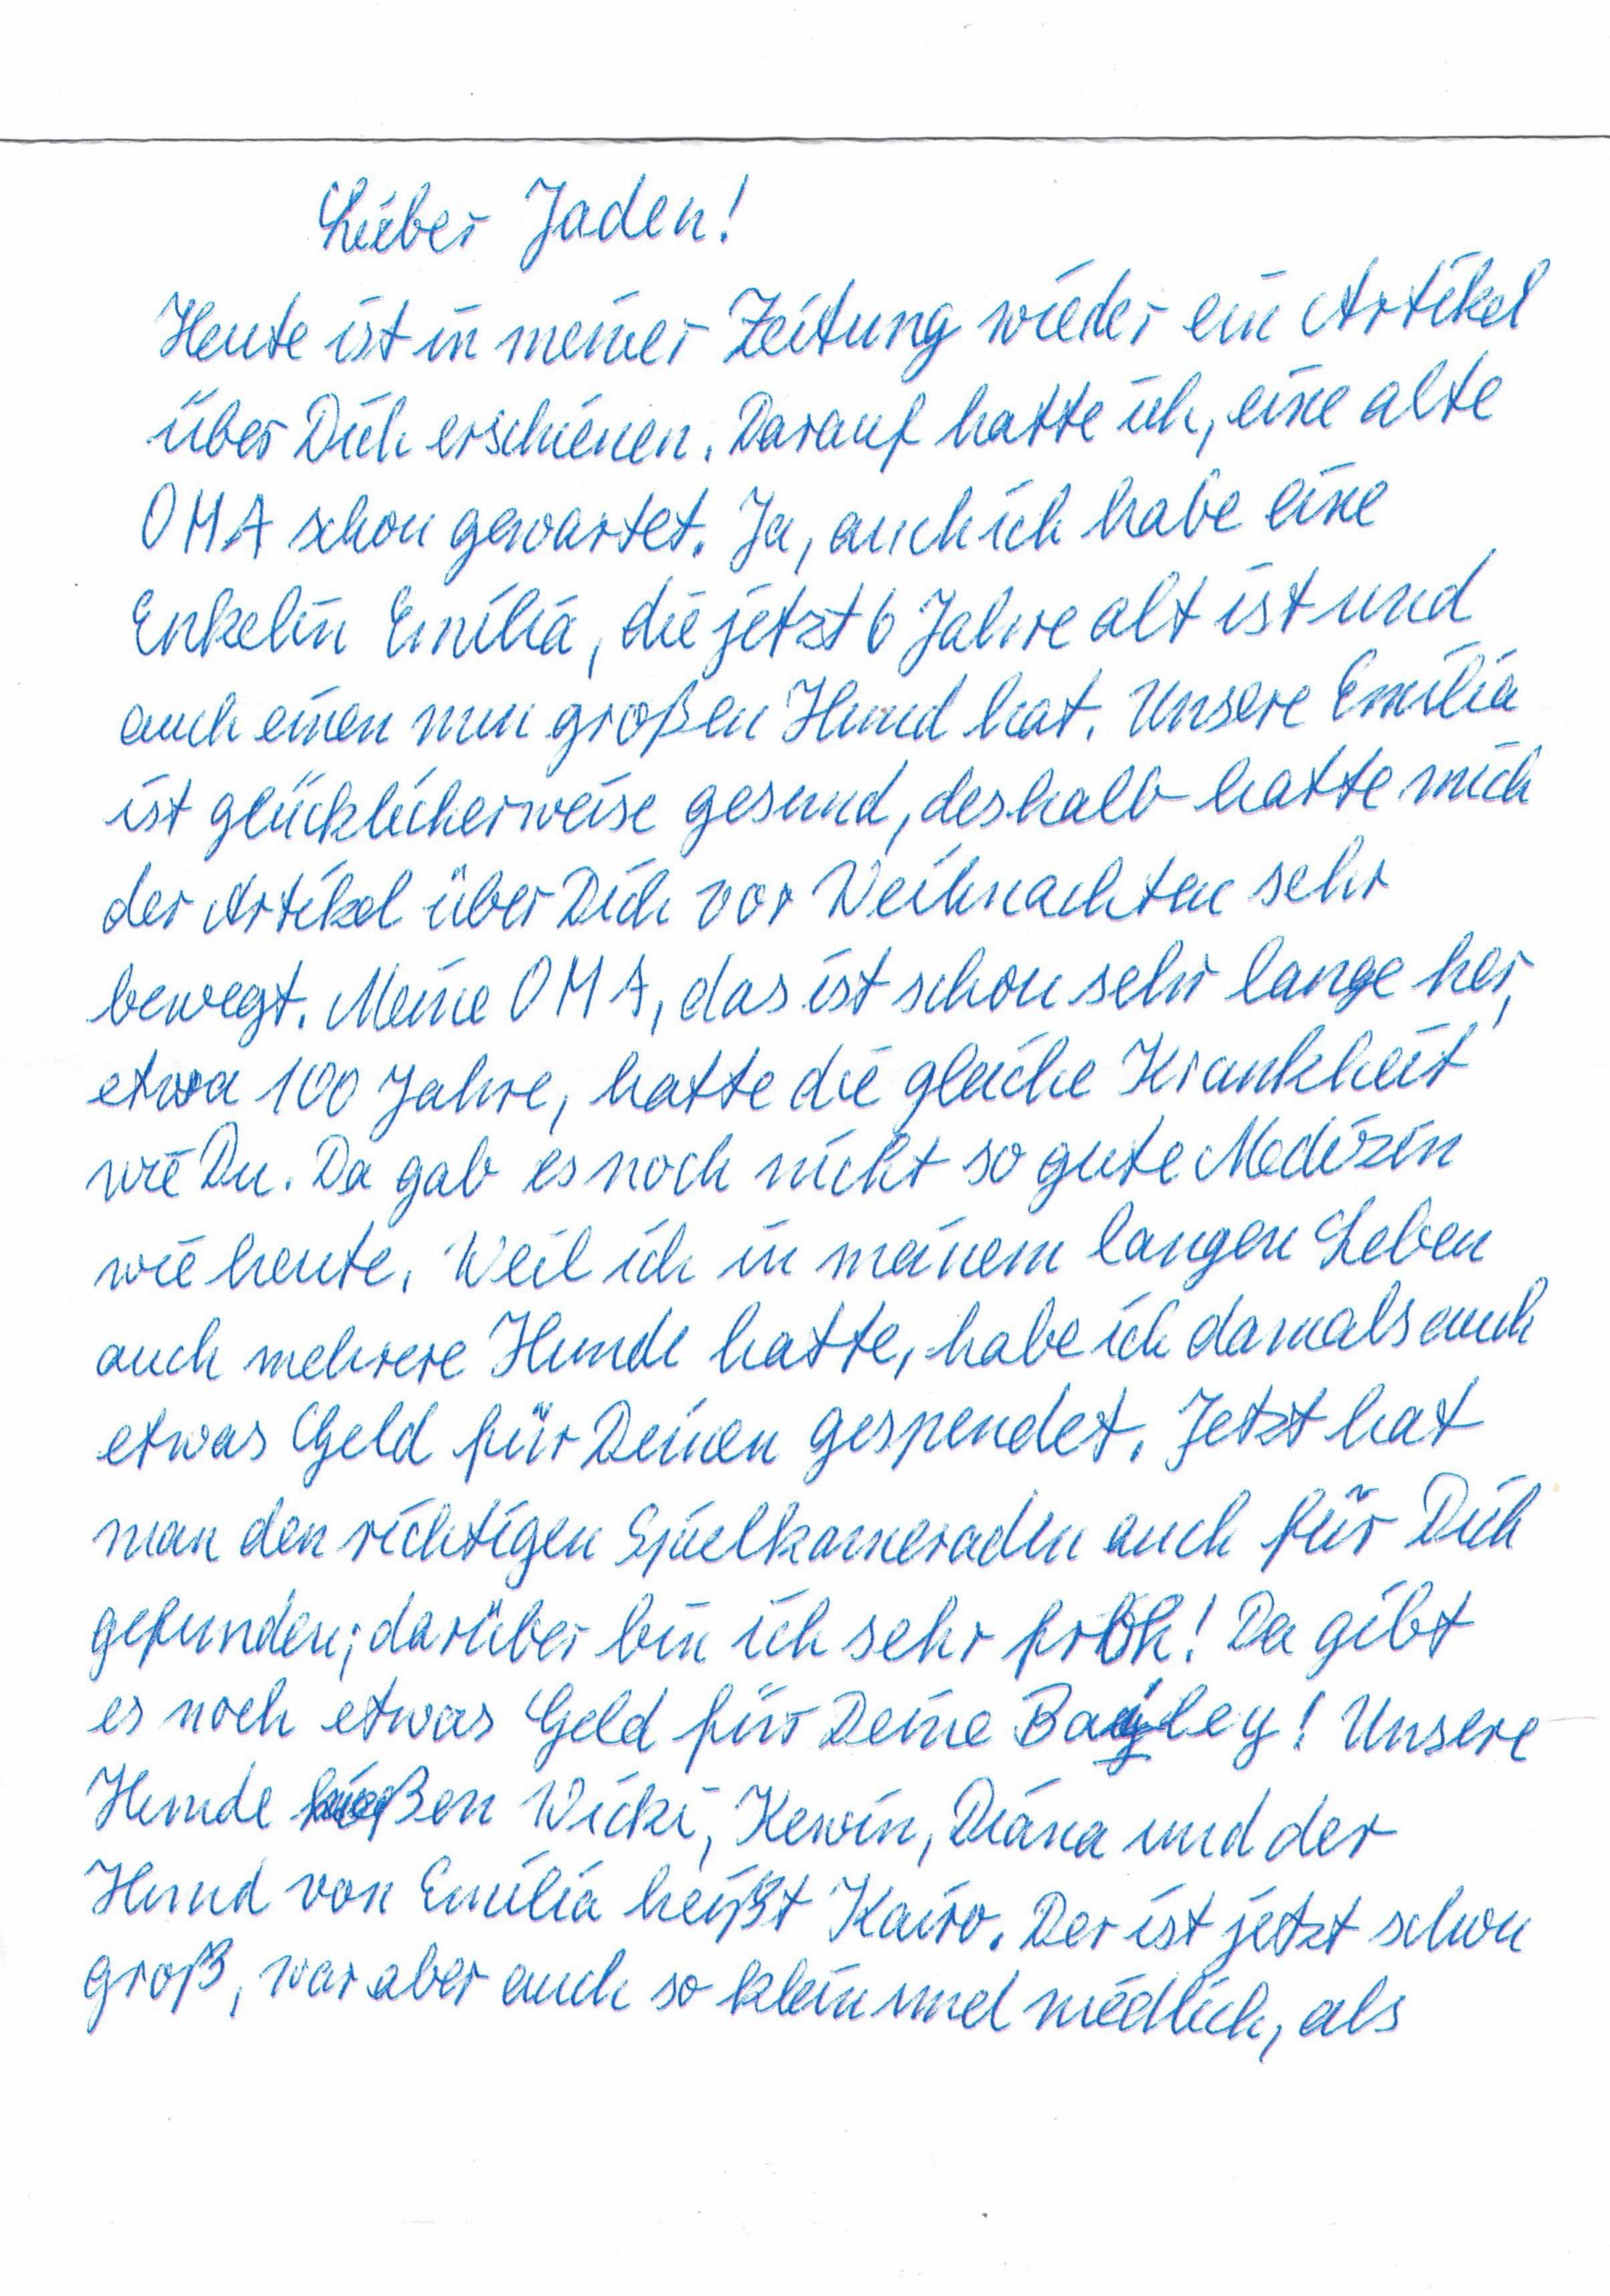 Lieber Jaden!
Heute ist in meiner Zeitung wieder ein Artikel
über Dich erschienen. Darauf hatte ich, eine alte
OMA schon gewartet. Ja, auch ich habe eine
Enkelin Emilia, die jetzt 6 Jahre alt ist und
auch einen nun großen Hund hat. Unsere Emilia
ist glücklicherweise gesund, deshalb hatte mich
der Artikel über Dich vor Weihnachten sehr
bewegt. Meine OMA, das ist schon sehr lange her,
etwa 100 Jahre, hatte die gleiche Krankheit
wie Du. Da gab es noch nicht so gute Medizin
wie heute. Weil ich in meinem langen Leben
auch mehrere Hunde hatte, habe ich damals auch
etwas Geld für Deinen gespendet. Jetzt hat
man den richtigen Spielkameraden auch für Dich
gefunden; darüber bin ich sehr froh! Da gibt
es noch etwas Geld für Deine Bayley! Unsere
Hunde hießen Wicki, Kewin, Diana und der
Hund von Emilia heißt Kairo. Der ist jetzt schon
groß, war aber auch so klein und niedlich, als